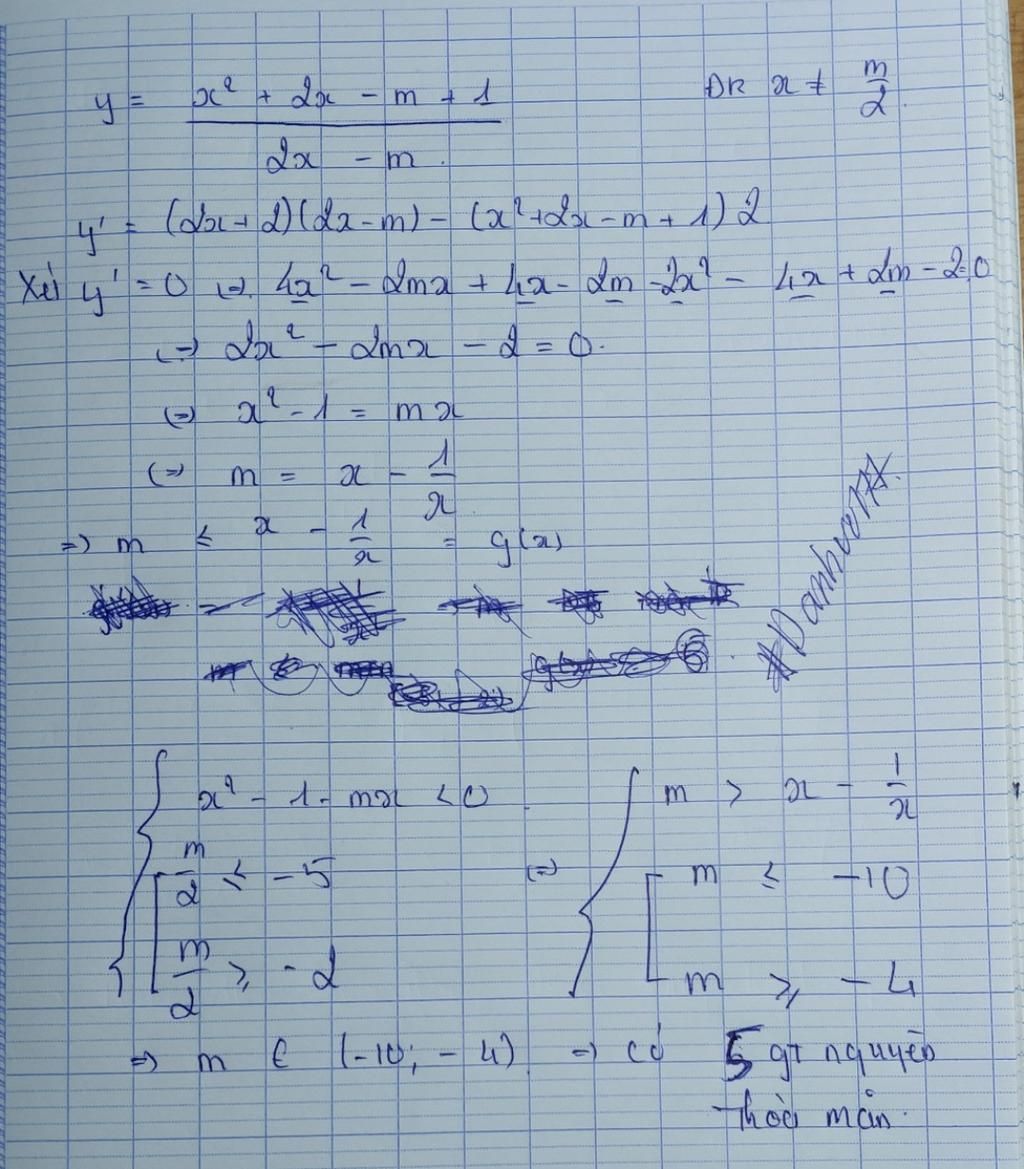 y = (x² + 2x - m + 1) / (2x - m) ĐK x ≠ m/2
y' = (2x+2)(2x-m) - (x²+2x-m+1)2
Xét y' = 0 (=) 4x² - 2mx + 4x - 2m - 2x² - 4x + 2m - 2 = 0
(=) 2x² - 2mx - 2 = 0.
(=) x² - 1 = mx
(=) m = x - 1/x
=) m ≤ x - 1/x = g(x)
{ x² - 1 - mx < 0 { m > x - 1/x
[ m/2 ≤ -5 (=) [ m ≤ -10
m/2 ≥ -2 m ≥ -4
=) m ∈ (-10; -4) =) có 5 gt nguyên
thỏa mãn.